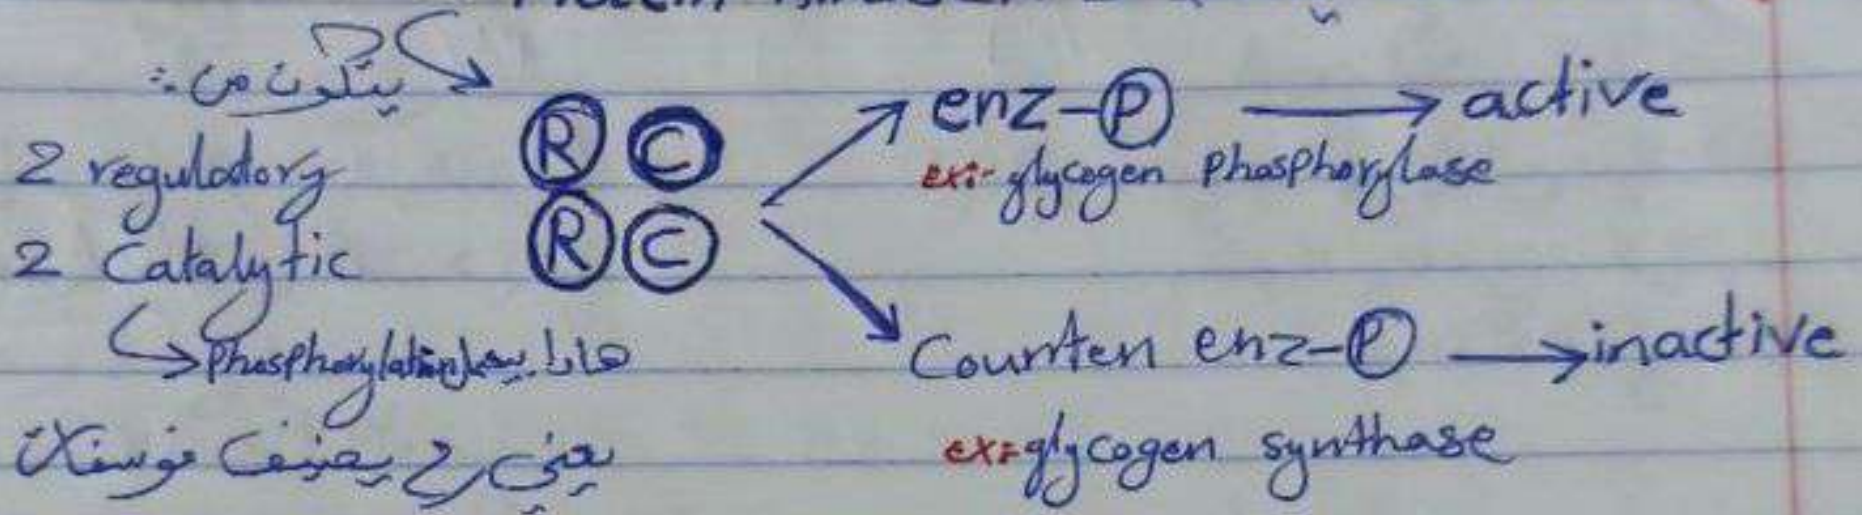 يتكون من :-
2 regulatory
2 Catalytic
هذا بيعمل phosphorylation
يعني رح يضيف فوسفات
R C
R C
enz-P → active
ex:- glycogen phosphorylase
Counter enz-P → inactive
ex:- glycogen synthase